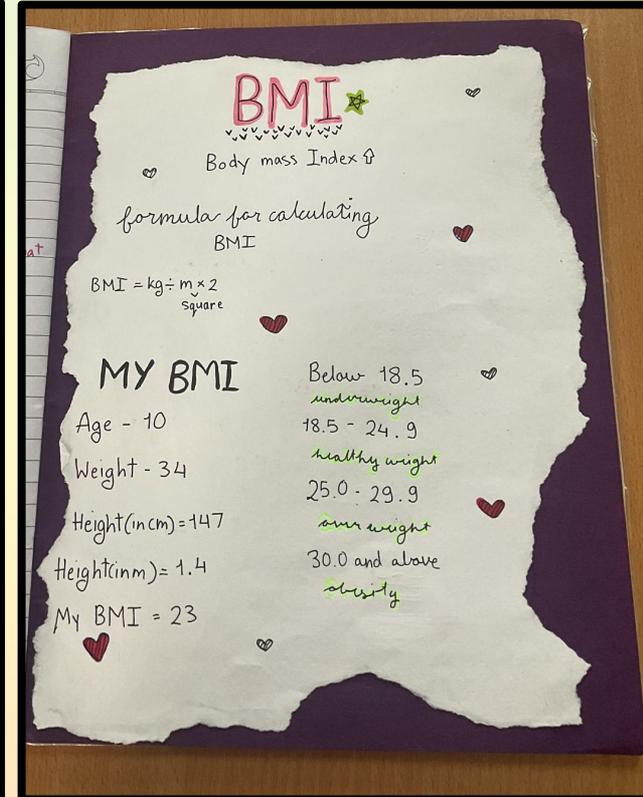 BMI
Body mass Index
formula for calculating
BMI
BMI = kg ÷ m × 2
square
MY BMI
Age - 10
Weight - 34
Height(in cm) = 147
Height(in m) = 1.4
My BMI = 23
Below 18.5
underweight
18.5 - 24.9
healthy weight
25.0 - 29.9
over weight
30.0 and above
obesity
at